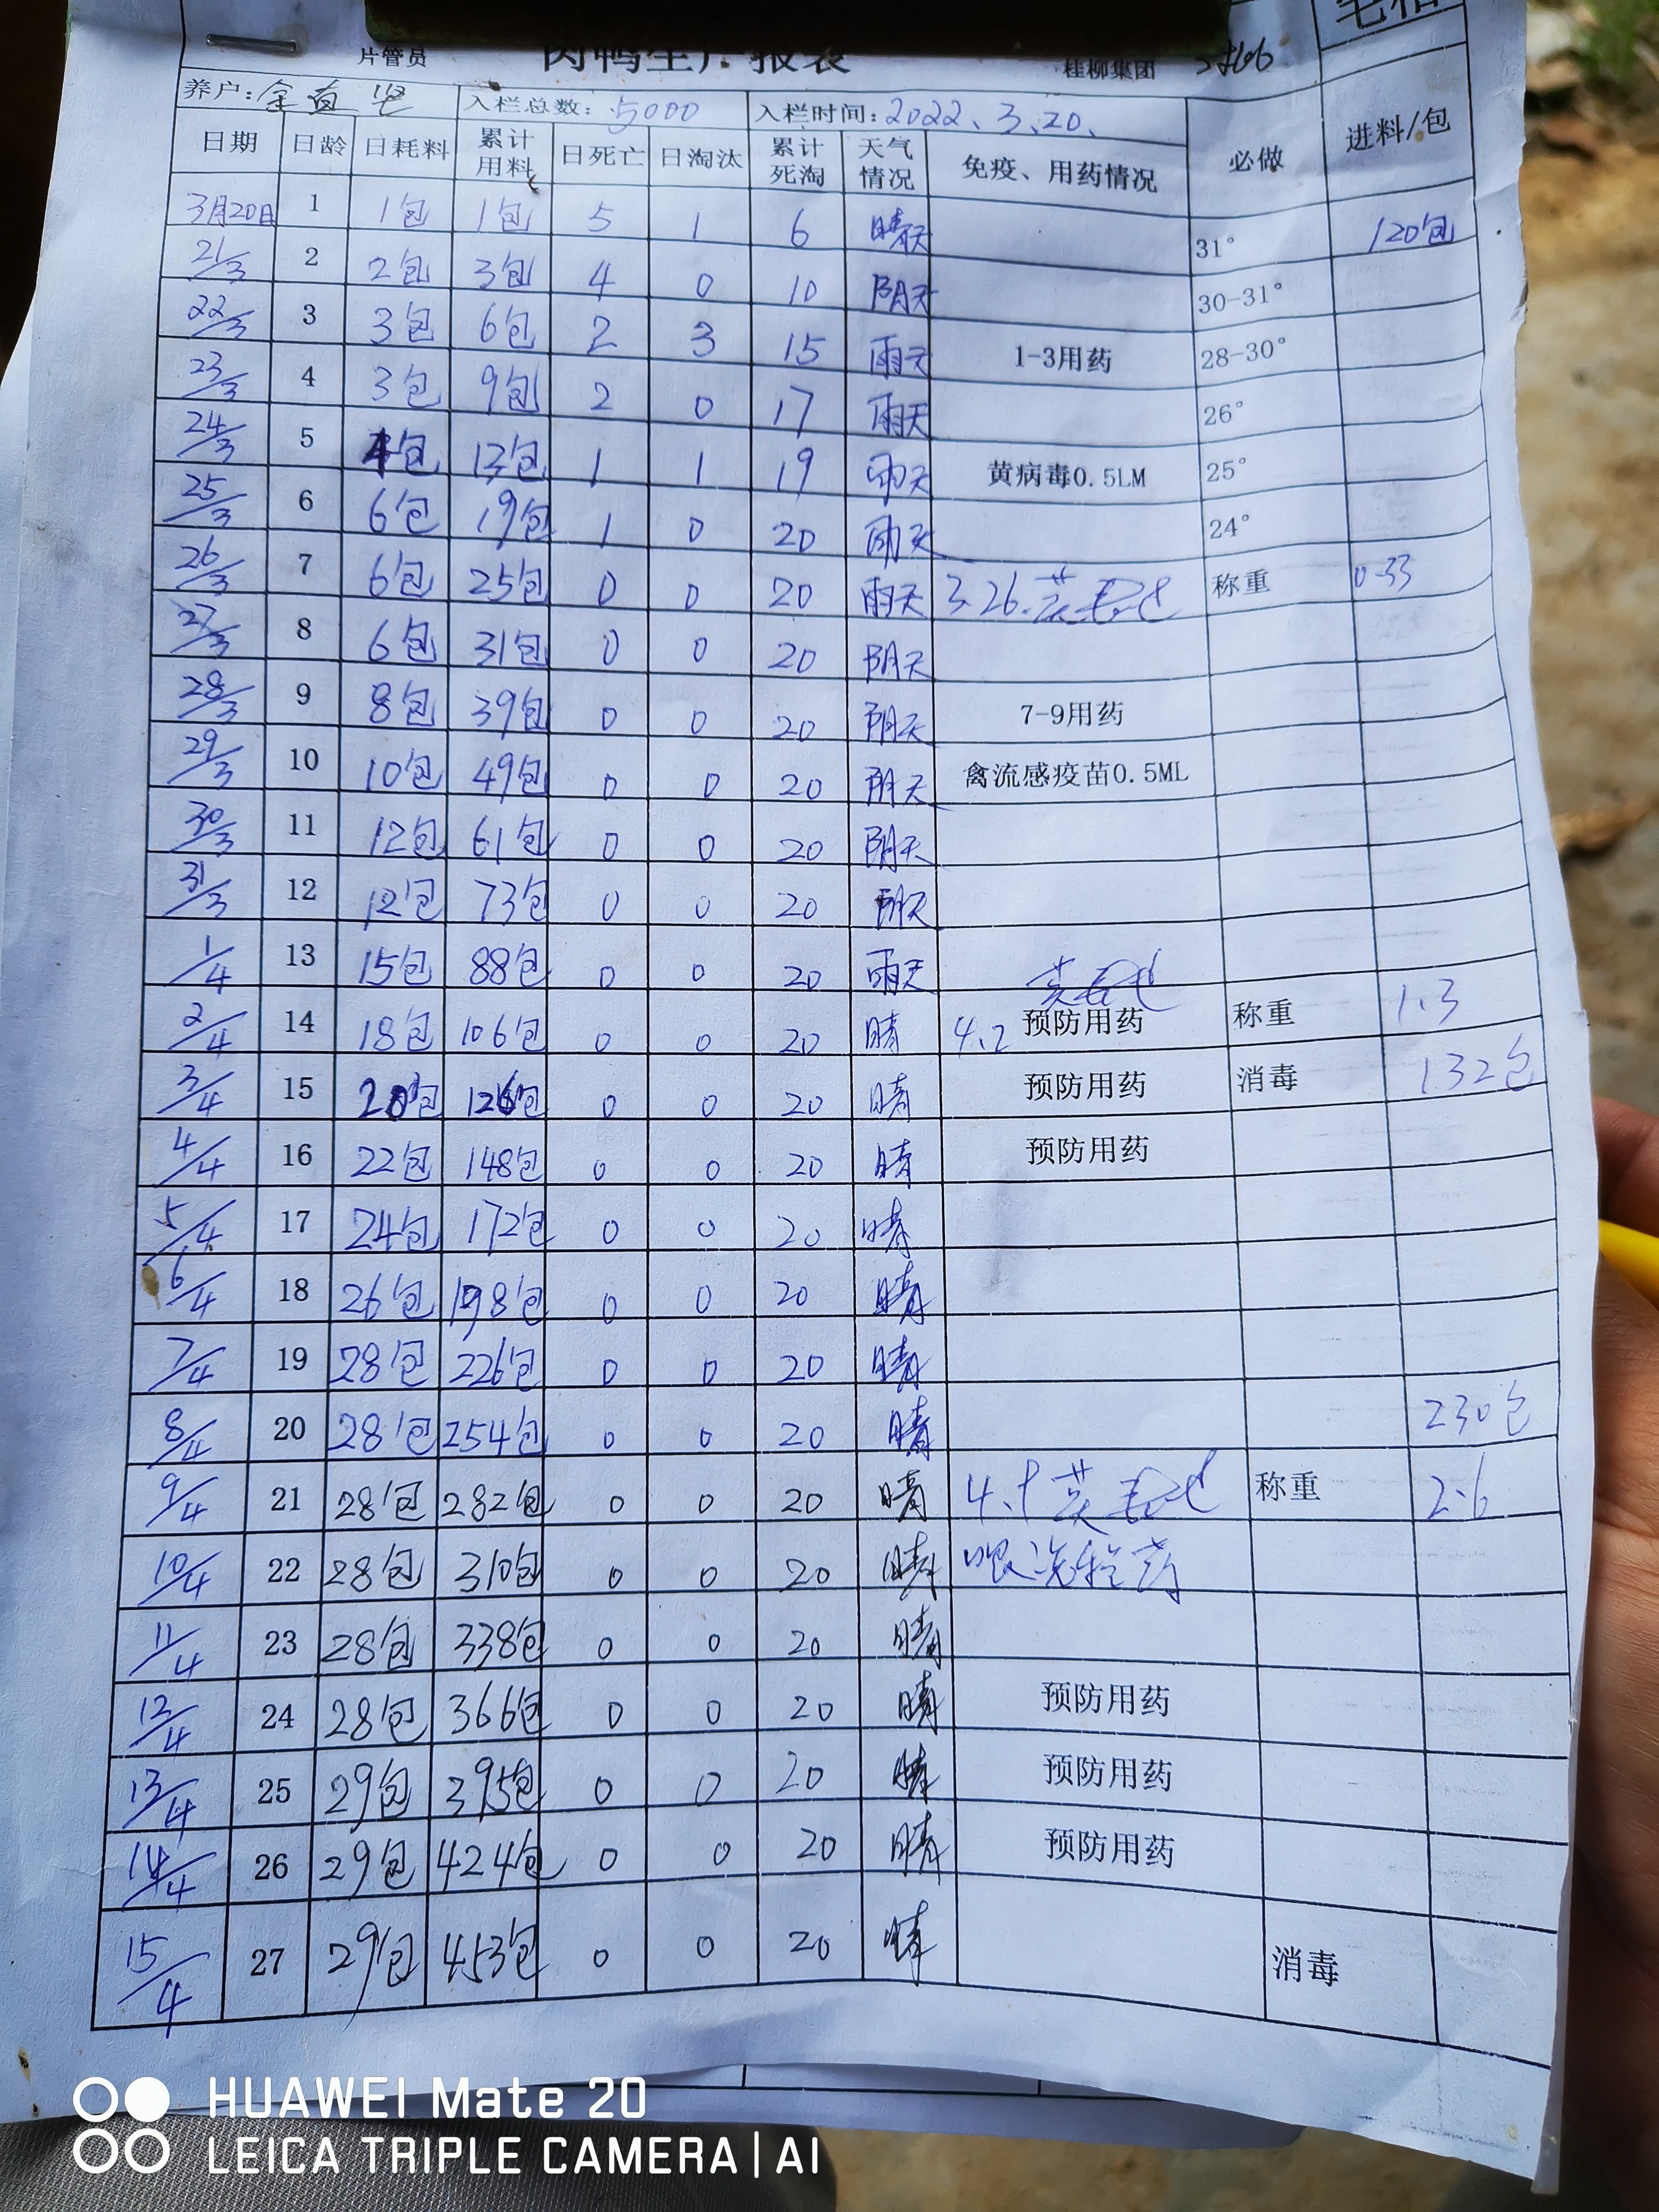 片管员 肉鸭生产报表 桂柳集团
养户: 入栏总数: 5000 入栏时间: 2022.3.20.
日期 日龄 日耗料 累计用料 日死亡 日淘汰 累计死淘 天气情况 免疫、用药情况 必做 进料/包
3月20日 1 1包 1包 5 1 6 晴天 31° 120包
21/3 2 2包 3包 4 0 10 阴天 30-31°
22/3 3 3包 6包 2 3 15 雨天 1-3用药 28-30°
23/3 4 3包 9包 2 0 17 雨天 26°
24/3 5 4包 13包 1 1 19 雨天 黄病毒0.5LM 25°
25/3 6 6包 19包 1 0 20 雨天 24°
26/3 7 6包 25包 0 0 20 雨天 3.26. 称重 0.33
27/3 8 6包 31包 0 0 20 阴天
28/3 9 8包 39包 0 0 20 阴天 7-9用药
29/3 10 10包 49包 0 0 20 阴天 禽流感疫苗0.5ML
30/3 11 12包 61包 0 0 20 阴天
31/3 12 12包 73包 0 0 20 阴天
1/4 13 15包 88包 0 0 20 雨天
2/4 14 18包 106包 0 0 20 晴 4.2 预防用药 称重 1.3
3/4 15 20包 126包 0 0 20 晴 预防用药 消毒 132包
4/4 16 22包 148包 0 0 20 晴 预防用药
5/4 17 24包 172包 0 0 20 晴
6/4 18 26包 198包 0 0 20 晴
7/4 19 28包 226包 0 0 20 晴
8/4 20 28包 254包 0 0 20 晴 230包
9/4 21 28包 282包 0 0 20 晴 称重 2.6
10/4 22 28包 310包 0 0 20 晴
11/4 23 28包 338包 0 0 20 晴
12/4 24 28包 366包 0 0 20 晴 预防用药
13/4 25 29包 395包 0 0 20 晴 预防用药
14/4 26 29包 424包 0 0 20 晴 预防用药
15/4 27 29包 453包 0 0 20 晴 消毒
HUAWEI Mate 20
LEICA TRIPLE CAMERA | AI